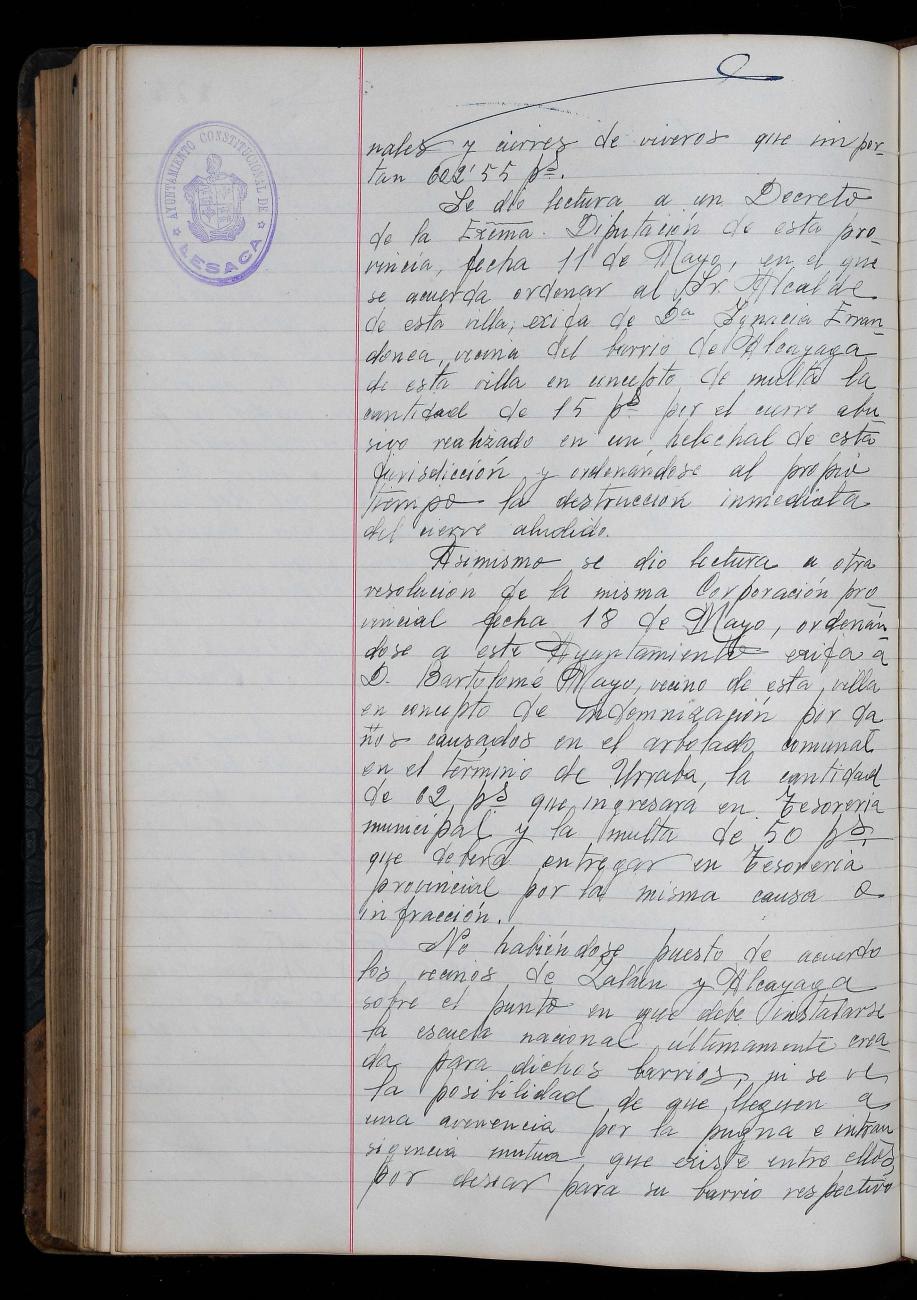 AYUNTAMIENTO CONSTITUCIONAL DE
LESACA
nales y cierres de viveros que impor-
tan 602'55 pts.
Se dió lectura a un Decreto
de la Exema. Diputación de esta pro-
vincia, fecha 11 de Mayo, en el que
se acuerda ordenar al Sr Alcalde
de esta villa, exija de Da Ignacia Erran-
donea, vecina del barrio de Alcayaga
de esta villa en concepto de multa la
cantidad de 15 pts por el cierre abu
sivo realizado en un helechal de esta
jurisdicción, y ordenándose al propio
tiempo la destrucción inmediata
del cierre aludido.
Asimismo se dio lectura a otra
resolución de la misma Corporación pro
vincial fecha 18 de Mayo, ordenán-
dose a este Ayuntamiento exija a
D. Bartolomé Mayo, vecino de esta villa
en concepto de indemnización por da
ños causados en el arbolado comunal
en el término de Urraba, la cantidad
de 62 pts que ingresara en Tesorería
municipal y la multa de 50 pts,
que deberá entregar en Tesorería
provincial por la misma causa o
infracción.
No habiéndose puesto de acuerdo
los vecinos de Zalain y Alcayaga
sobre el punto en que debe instalarse
la escuela nacional últimamente crea-
da para dichos barrios, ni se ve
la posibilidad de que lleguen a
una avenencia por la pugna e intran
sigencia mutua que existe entre ellos,
por desear para su barrio respectivo